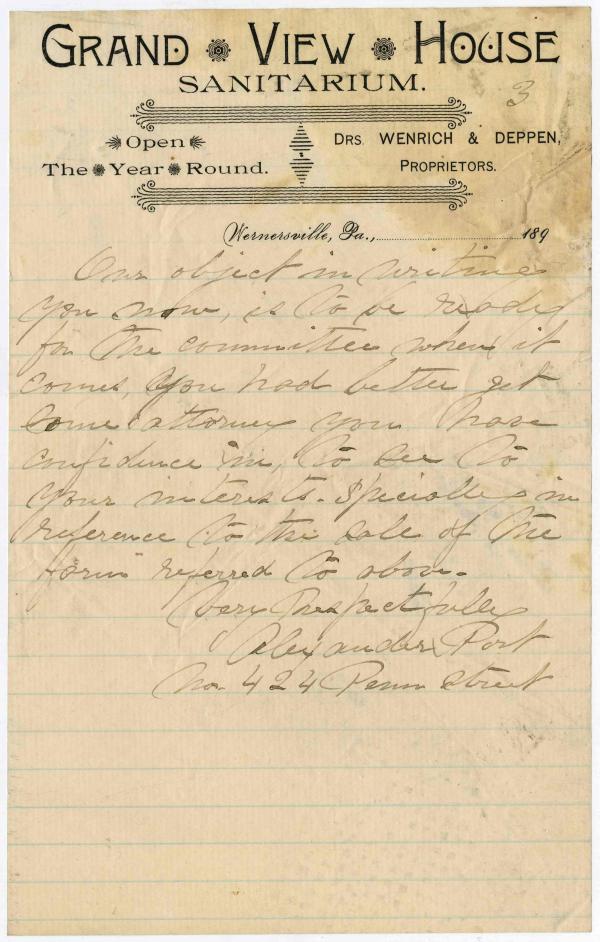 GRAND VIEW HOUSE
SANITARIUM.
3
Open
The Year Round.
DRS. WENRICH & DEPPEN,
PROPRIETORS.
Wernersville, Pa., 189
Our object in writing
you now, is to be ready
for the committee when it
comes, You had better get
some attorney you have
confidence in, to see to
your interests. Specialley in
reference to the sale of the
farm referred to above.
Very Respectfully
Alexander Port
No. 424 Penn Street